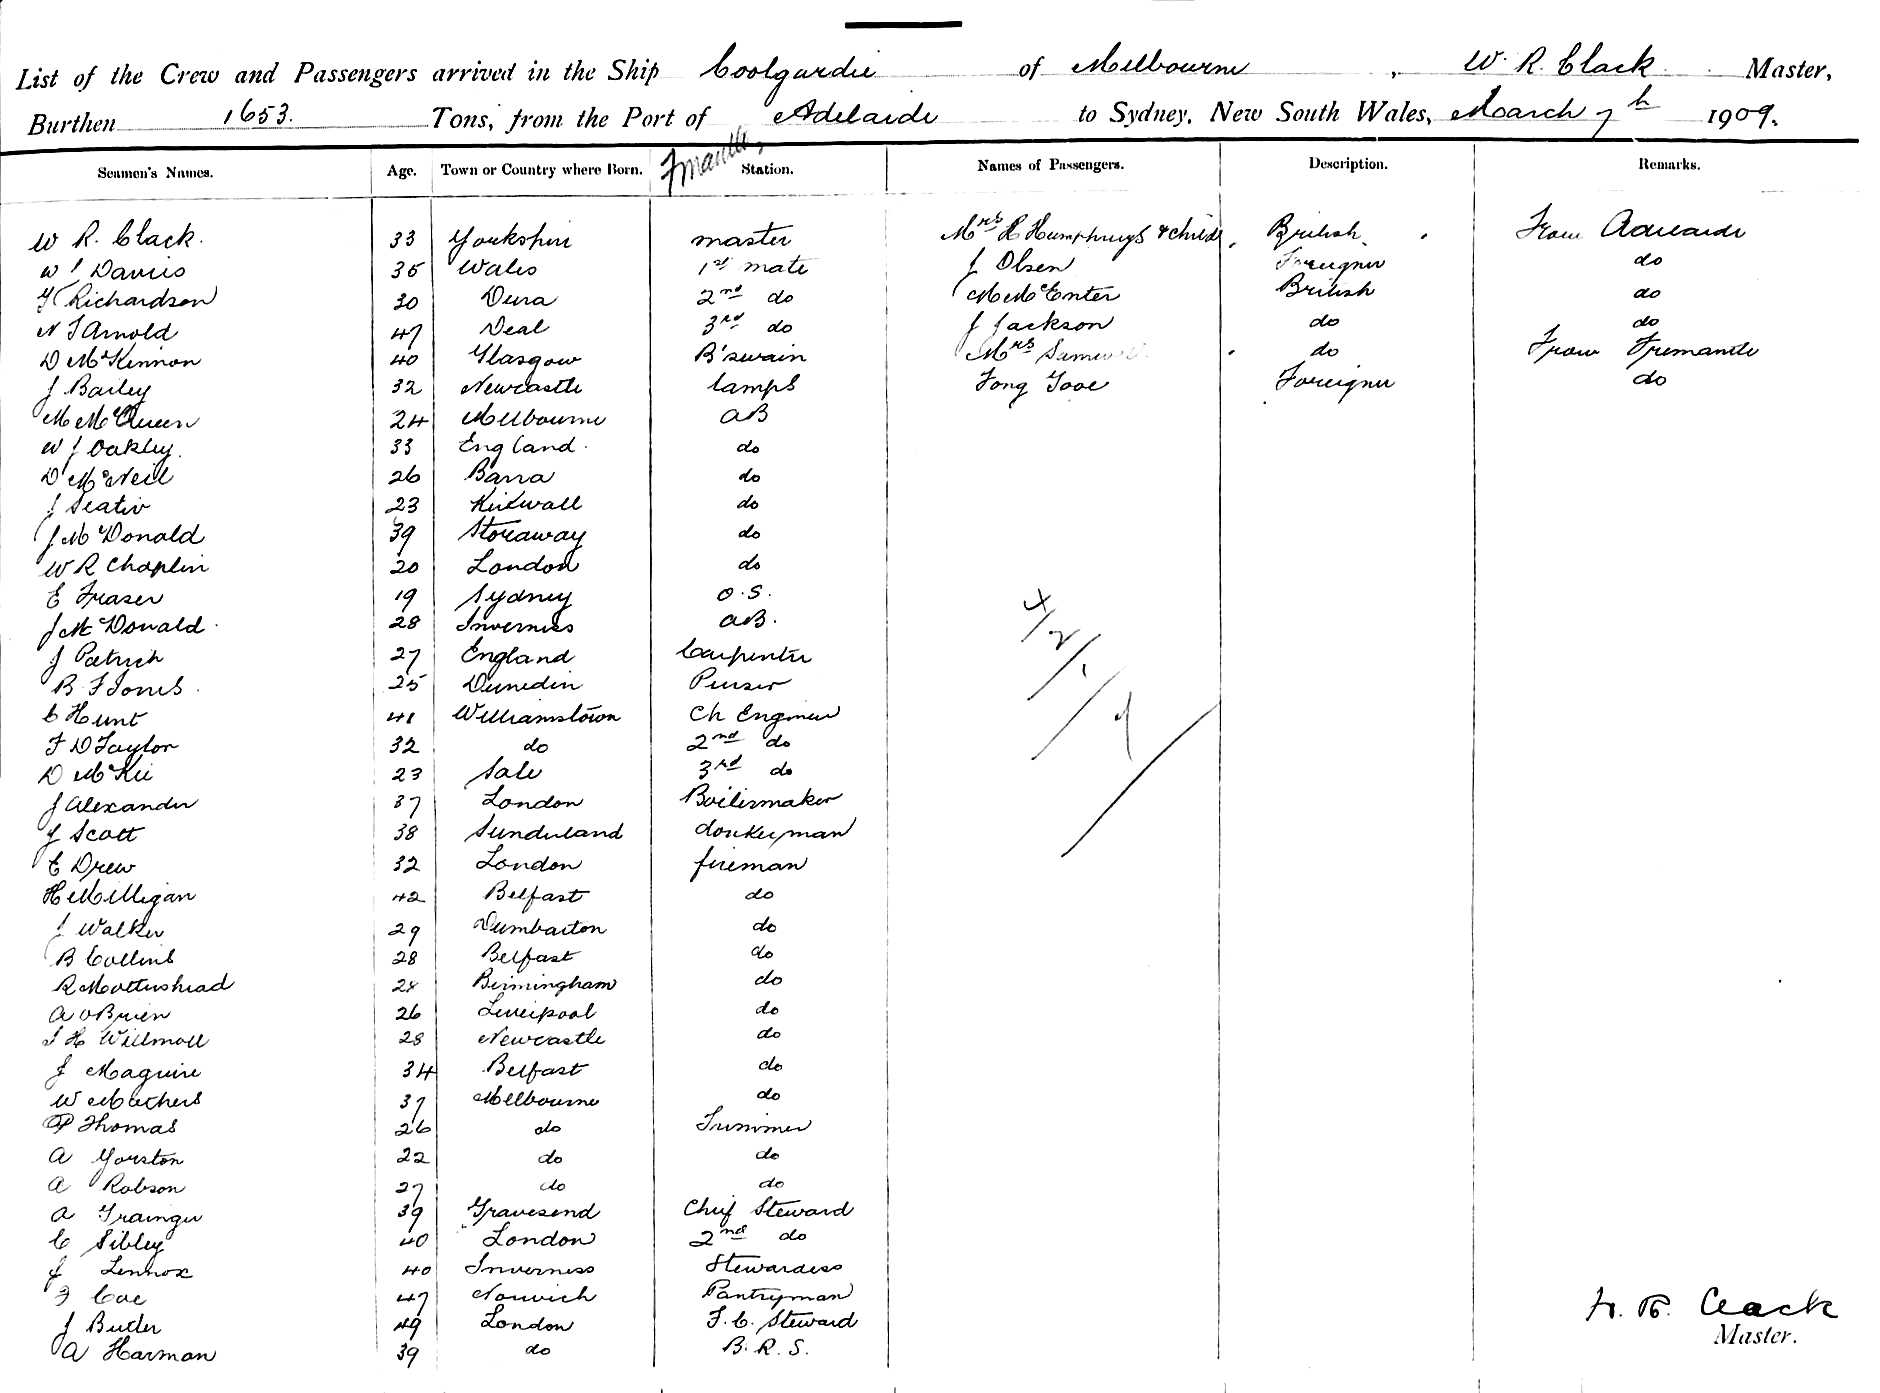 List of the Crew and Passengers arrived in the Ship Coolgardie of Melbourne, W. R. Clack Master,
Burthen 1653. Tons, from the Port of Adelaide to Sydney, New South Wales, March 7th 1909.
Fmantle,
Seamen's Names. Age. Town or Country where Born. Station. Names of Passengers. Description. Remarks.
W R. Clack. 33 Yorkshire master Mrs H Humphreys & child, British. From Adelaide
W J Davies 35 Wales 1st mate J Olsen Foreigner do
H Richardson 30 2nd do M McEnter British do
N J Arnold 47 Deal 3rd do J Jackson do do
D McKinnon 40 Glasgow B'swain Mrs do From Fremantle
J Bailey 32 Newcastle lamps Fong Foreigner do
M McQueen 24 Melbourne AB
W J Oakley. 33 England. do
D McNeil 26 Barra do
J Seatir 23 Kirkwall do
J McDonald 39 Stornaway do
W R Chaplin 20 London do
E Fraser 19 Sydney O.S.
J McDonald. 28 Inverness AB.
J Patrick 27 England Carpenter
B F Jones. 25 Dunedin Purser
C Hunt 41 Williamstown Ch Engineer
F D Taylor 32 do 2nd do
D McKie 23 Sale 3rd do
J Alexander 37 London Boilermaker
J Scott 38 Sunderland donkeyman
E Drew 32 London fireman
H Milligan 42 Belfast do
J Walker 29 Dumbarton do
B Collins 28 Belfast do
R Mottershead 28 Birmingham do
A O'Brien 26 Liverpool do
J H Willmott 28 Newcastle do
J Maguire 34 Belfast do
W Mathers 37 Melbourne do
P Thomas 26 do Trimmer
A Yorston 22 do do
A Robson 27 do do
A Grainger 39 Gravesend Chief Steward
C Sibley 40 London 2nd do
J Lennox 40 Inverness Stewardess
F Coe 47 Norwich Pantryman
J Butler 49 London F.C. Steward
A Harman 39 do B.R.S.
W. R. Clack
Master.